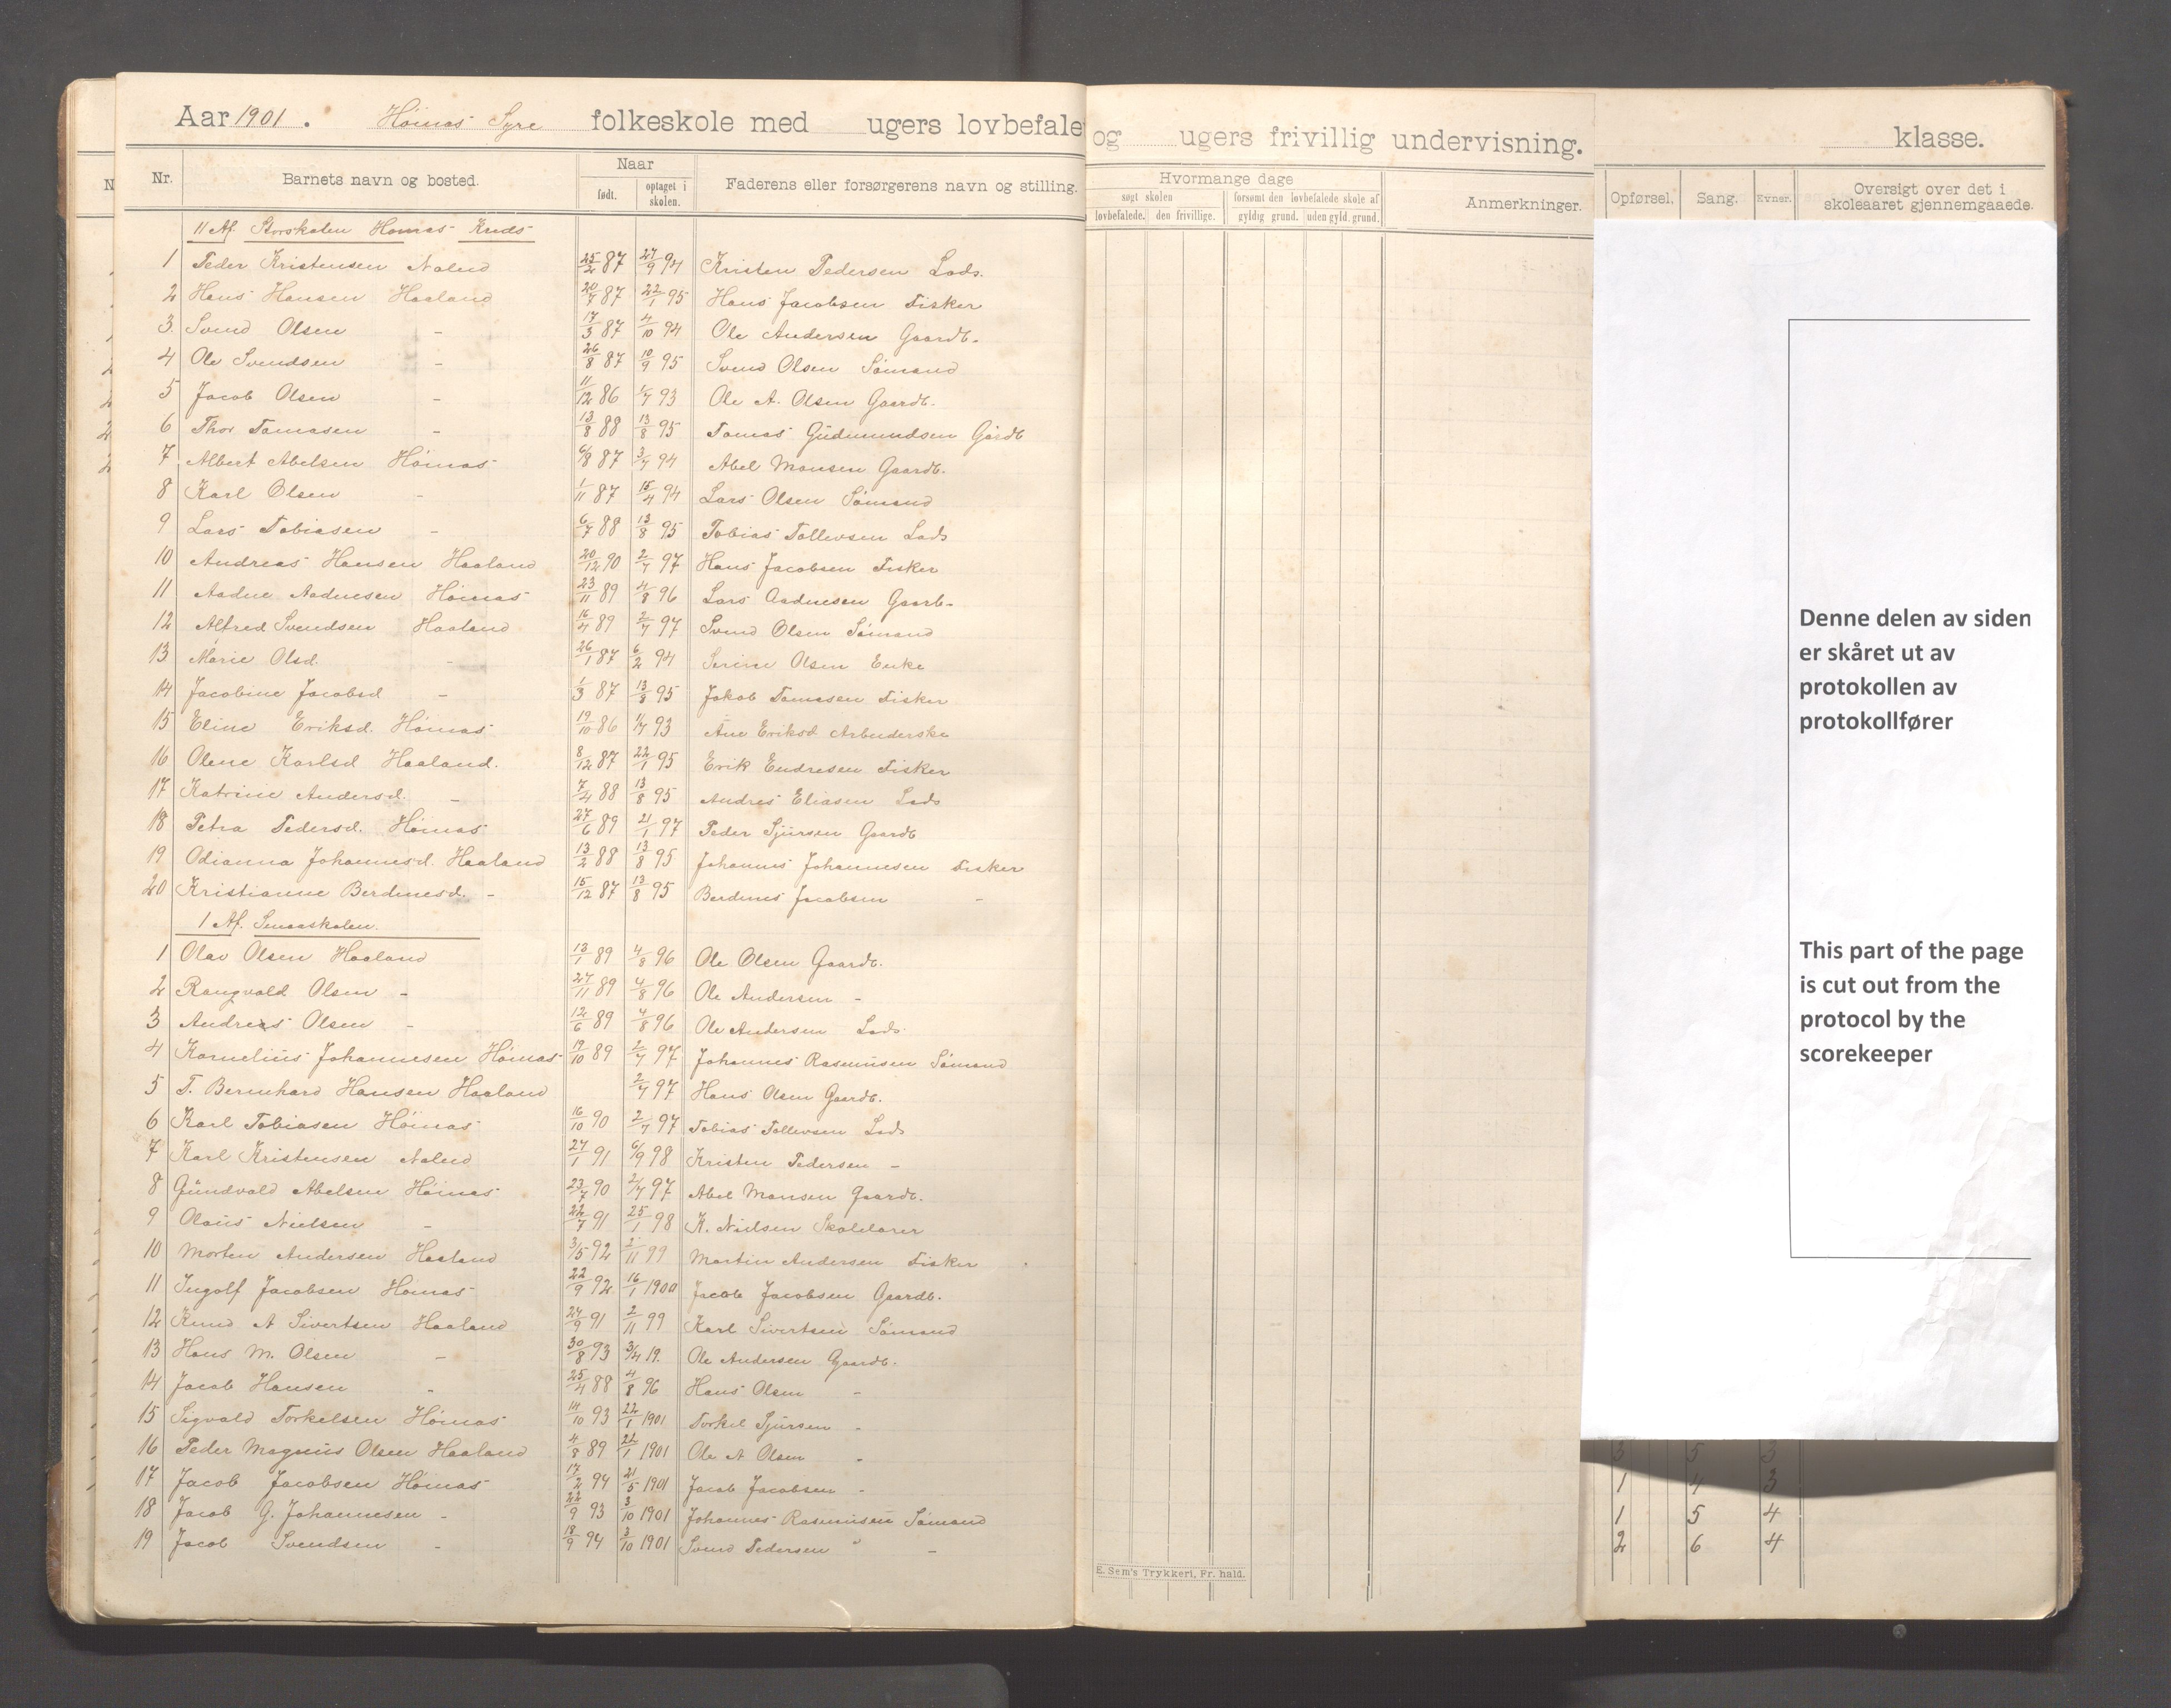 Aar 1901. Høinæs Syre folkeskole med ugers lovbefale og ugers frivillig undervisning. klasse.
Nr. Barnets navn og bosted. Naar født. optaget i skolen. Faderens eller forsørgerens navn og stilling. Hvormange dage søgt skolen lovbefalede. den frivillige. forsømt den lovbefalede skole af gyldig grund. uden gyld. grund. Anmerkninger. Opførsel. Sang. Evner. Oversigt over det i skoleaaret gjennemgaaede.
II Af. Storskolen Kreds
1 Peder Kristensen 25/2 87 27/9 94 Kristen Pedersen Lods.
2 Hans Hansen Haaland 20/7 87 22/1 95 Hans Jacobsen Fisker
3. Svend Olsen - 17/3 87 4/10 94 Ole Andersen Gaardb.
4 Ole Svendsen - 26/8 87 10/9 95 Svend Olsen Sømand
5 Jacob Olsen - 11/12 86 1/7 93 Ole A. Olsen Gaardb.
6 Thor Tomasen - 13/8 88 13/8 95 Tomas Gudmundsen Gårdb
7 Albert Abelsen Høinæs 6/8 87 3/7 94 Abel Monsen Gaardb.
8 Karl Olsen - 1/11 87 15/4 94 Lars Olsen Sømand
9 Lars Tobiasen - 6/7 88 13/8 95 Tobias Tollevsen Lods
10 Andreas Hansen Haaland 20/12 90 2/7 97 Hans Jacobsen Fisker
11 Aadne Aadnesen Høinæs 23/11 89 4/8 96 Lars Aadnesen Gaarb.
12 Alfred Svendsen Haaland 16/4 89 2/7 97 Svend Olsen Sømand
13 Marie Olsd. - 26/1 87 6/2 94 Serine Olsen Enke
14 Jacobine Jacobsd - 1/3 87 13/8 95 Jakob Tomasen Fisker
15 Eline Eriksd. Høinæs 19/10 86 1/7 93 Ane Eriksd Arbuderske
16 Olene Karlsd Haaland. 8/12 87 22/1 95 Erik Endresen Fisker
17 Katrine Andersd. - 7/4 88 13/8 95 Andres Eliasen Lods
18 Petra Pedersd. Høinæs 27/6 89 21/1 97 Peder Sjursen Gaardb
19 Odianna Johannesd. Haaland 13/2 88 13/8 95 Johannes Johannesen Fisker
20 Kristianne Berdinesd. - 15/12 87 13/8 95 Berdines Jacobsen -
I Af. Smaaskolen.
1 Olav Olsen Haaland 13/1 89 4/8 96 Ole Olsen Gaardb.
2 Rangvald Olsen - 27/11 89 4/8 96 Ole Andersen -
3 Andreas Olsen - 12/6 89 4/8 96 Ole Andersen Lods.
4 Kornelius Johannesen Høinæs 19/10 89 2/7 97 Johannes Rasmusen Sømand
5 T. Bernhard Hansen Haaland 2/7 97 Hans Olsen Gaardb.
6 Karl Tobiasen Høinæs 16/10 90 2/7 97 Tobias Tollevsen Lods
7 Karl Kristensen 27/1 91 6/9 98 Kristen Pedersen -
8 Gundvald Abelsen Høinæs 23/7 90 2/7 97 Abel Monsen Gaardb.
9 Olaus Nielsen - 22/7 91 25/1 98 K. Nielsen Skolelærer
10 Morten Andersen Haaland 3/5 92 2/11 99 Martin Andersen Fisker
11 Ingolf Jacobsen Høinæs 22/9 92 16/1 1900 Jacob Jacobsen Gaardb.
12 Knud A Sivertsen Haaland 27/9 91 2/11 99 Karl Sivertsen Sømand
13 Hans M. Olsen - 30/8 93 3/4 19. Ole Andersen Gaardb.
14 Jacob Hansen - 25/4 88 4/8 96 Hans Olsen -
15 Sigvald Torkelsen Høinæs 14/10 93 22/1 1901 Torkel Sjursen -
16 Peder Magnus Olsen Haaland 4/8 89 22/1 1901 Ole A Olsen - 3 5 3
17 Jacob Jacobsen Høinæs 17/2 94 21/5 1901 Jacob Jacobsen - 1 4 3
18 Jacob G. Johannesen - 22/9 93 3/10 1901 Johannes Rasmusen Sømand 1 5 4
19 Jacob Svendsen - 18/9 94 3/10 1901 Svend Pedersen - 2 6 4
E. Sem's Trykkeri, Fr. hald.
Denne delen av siden
er skåret ut av
protokollen av
protokollfører
This part of the page
is cut out from the
protocol by the
scorekeeper